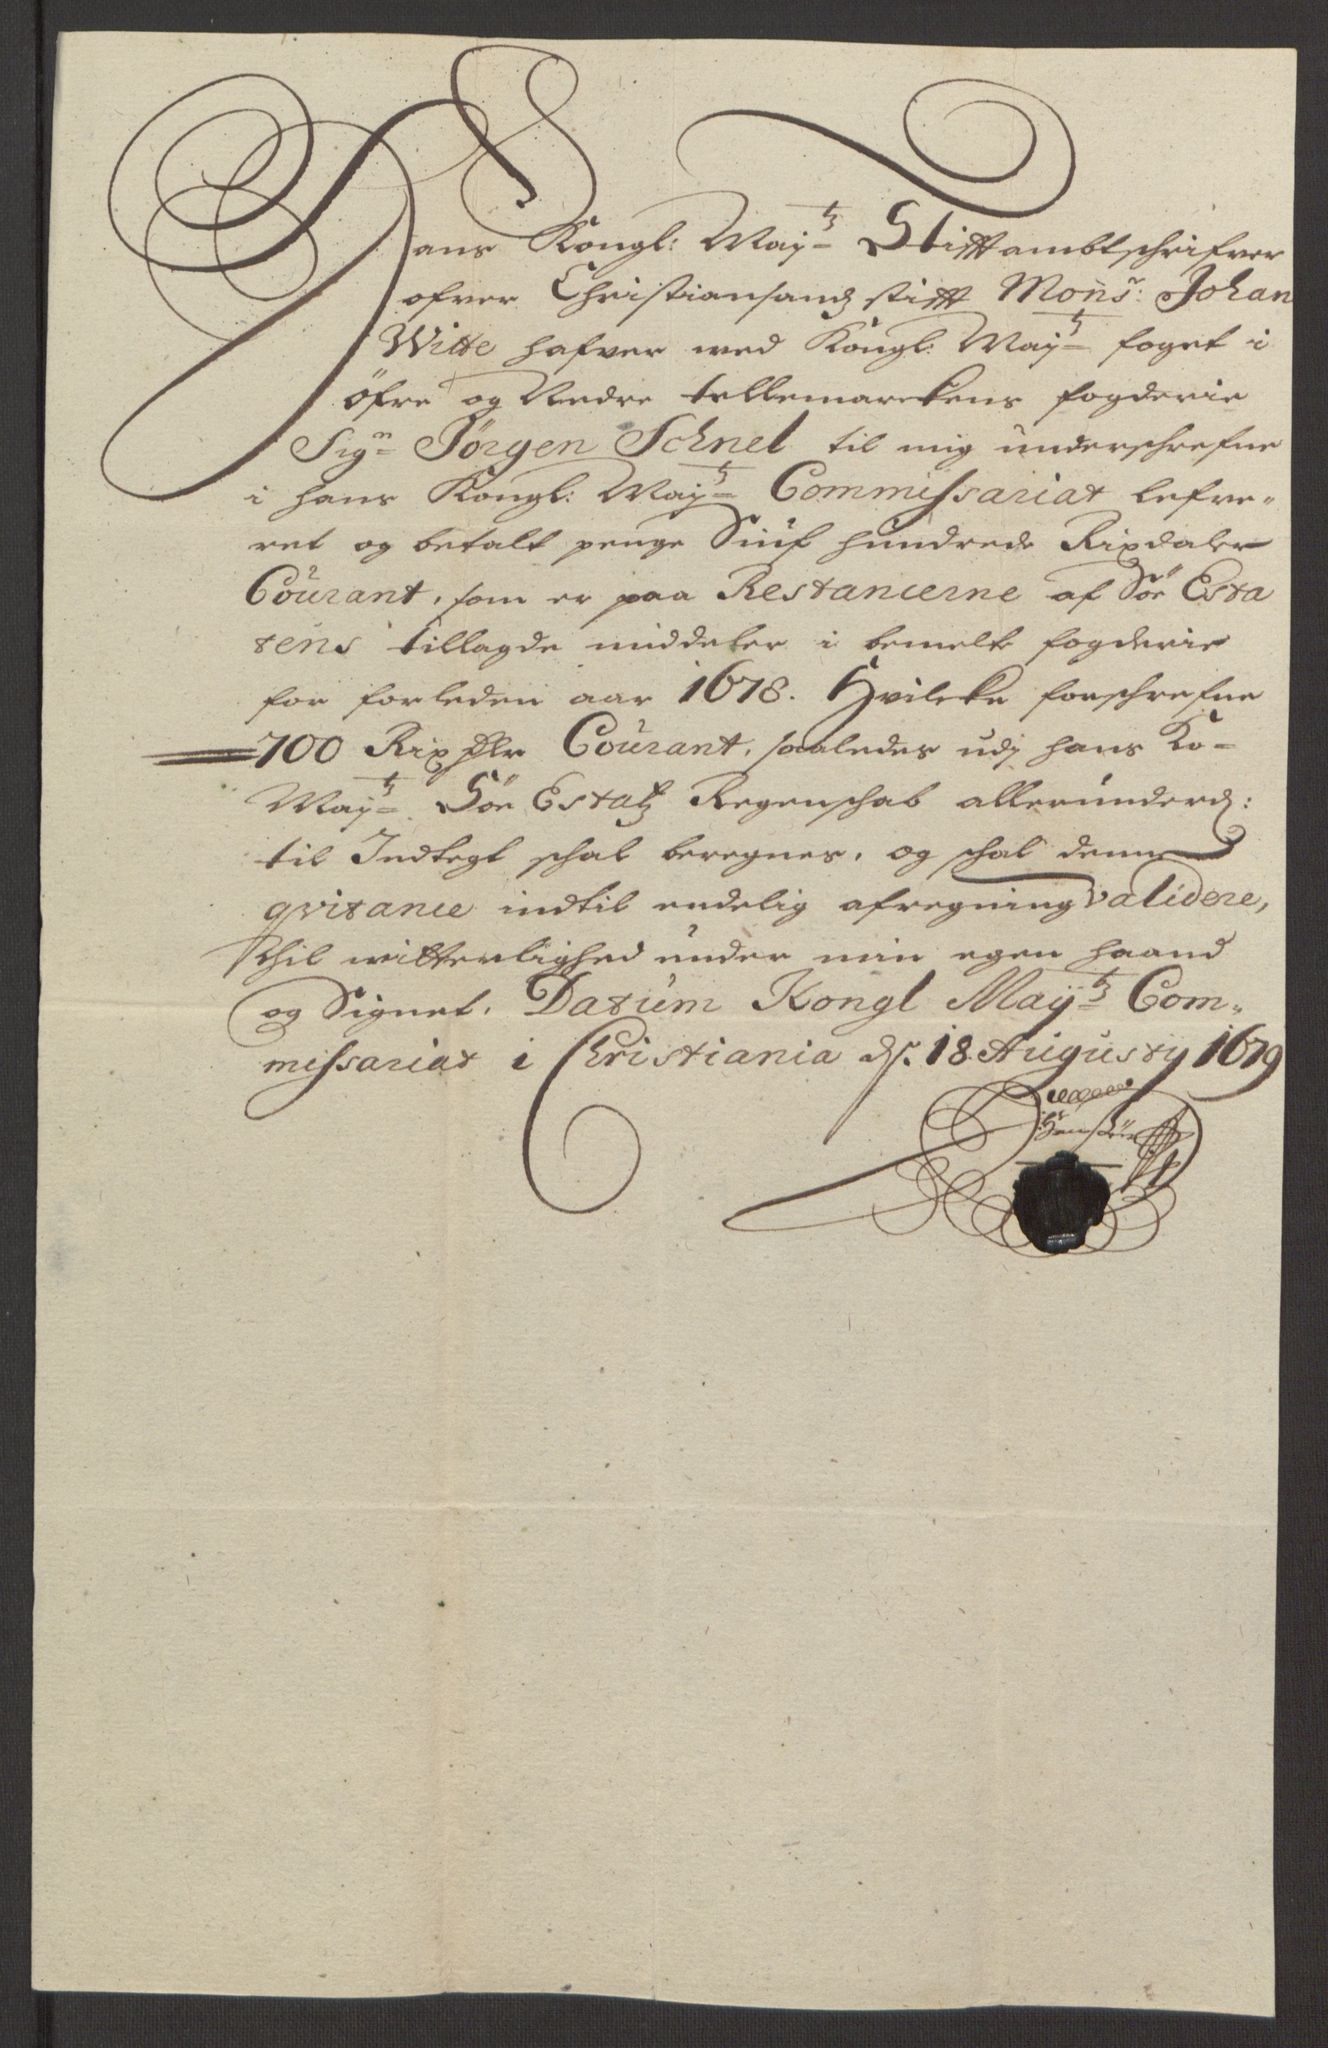 Hans Kongl: Maÿ:tz Stifftambtschrifver
ofver Christiansandz stifft Monsr: Johan
Witte hafver med Kongl: Maÿ:tz foget i
öfre og Nedre tellemarckens fogderie
Sign: Jörgen Schnel til mig underschrefne
i hans Kongl: Maÿ:tz Commissariat lefve-
ret og betalt penge Siuf hundrede Rixdaler
Courant, som er paa Restancerne af Söe Esta
tens tillagde middeler i bemelte fogderie
for forleden aar 1678. Hvilcke forschrefne
700 Rixdlr Courant, saaledes udj hans Ko-
Maÿ:tz Söe Estatz Regenschab allerunderd:
til Indtegt schal beregnes, og schal denne
qvitance indtil endelig afregning validere,
Thil witterlighed under min egen haand
og Signet, Datum Kongl Maÿ:tz Com-
missariat i Christiania ds. 18 Augusty 1679